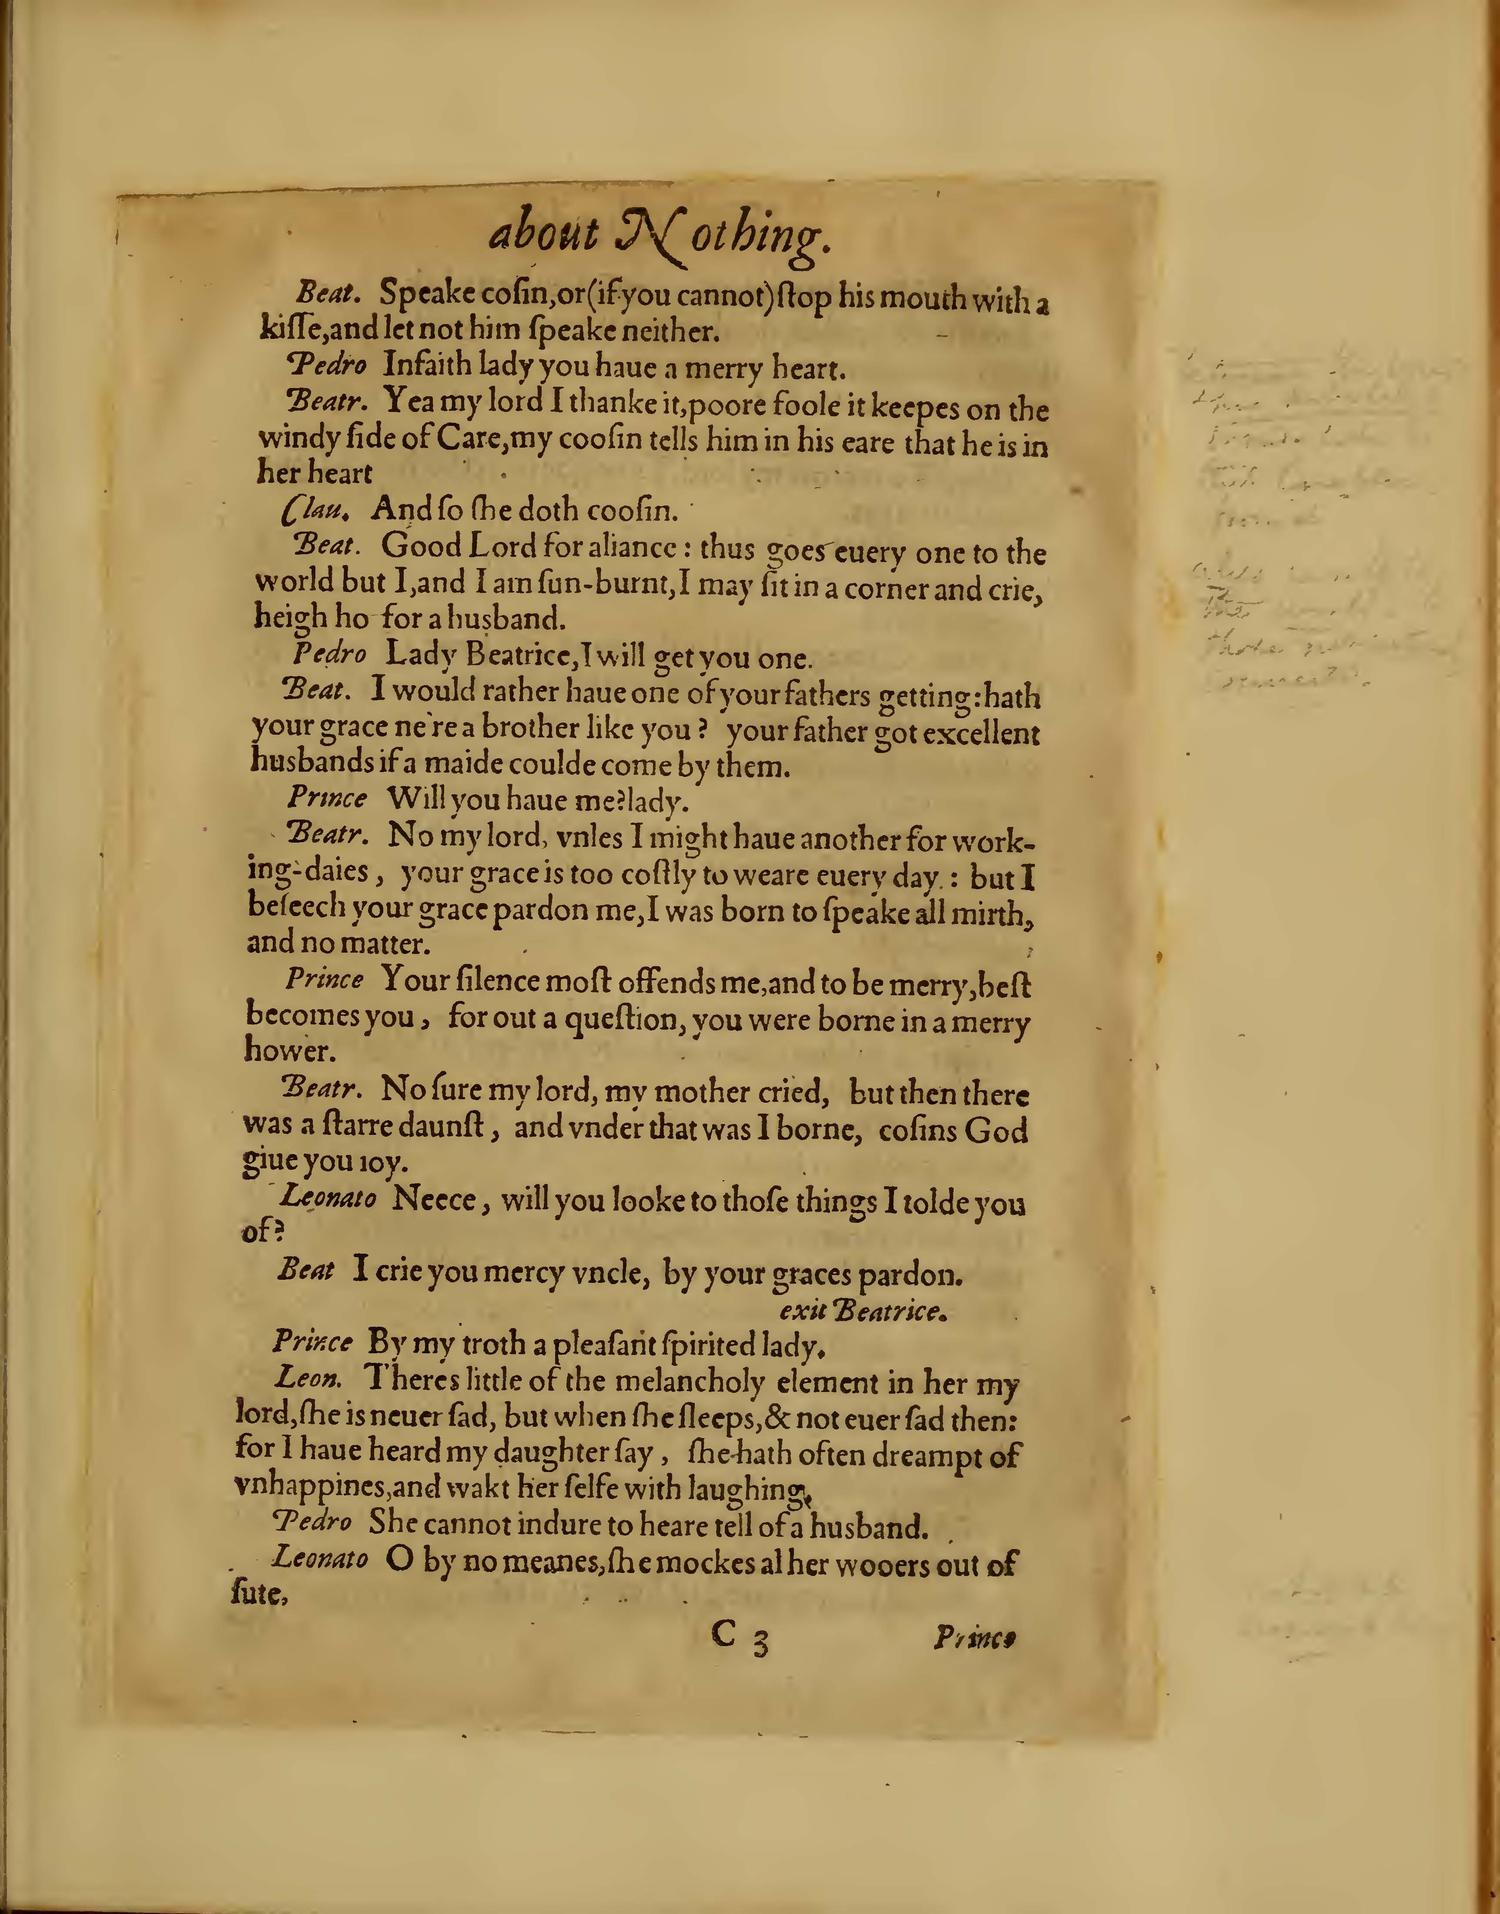 about Nothing.
Beat. Speake coſin,or(if you cannot)ſtop his mouth with a
kiſſe,and let not him ſpeake neither.
Pedro Infaith lady you haue a merry heart.
Beatr. Yea my lord I thanke it,poore foole it keepes on the
windy ſide of Care,my cooſin tells him in his eare that he is in
her heart
Clau. And ſo ſhe doth cooſin.
Beat. Good Lord for aliance : thus goes euery one to the
world but I,and I am ſun-burnt,I may ſit in a corner and crie,
heigh ho for a husband.
Pedro Lady Beatrice,I will get you one.
Beat. I would rather haue one of your fathers getting:hath
your grace ne're a brother like you ? your father got excellent
husbands if a maide coulde come by them.
Prince Will you haue me?lady.
Beatr. No my lord, vnles I might haue another for work-
ing-daies , your grace is too coſtly to weare euery day : but I
beſeech your grace pardon me,I was born to ſpeake all mirth,
and no matter.
Prince Your ſilence moſt offends me,and to be merry,beſt
becomes you , for out a queſtion, you were borne in a merry
hower.
Beatr. No ſure my lord, my mother cried, but then there
was a ſtarre daunſt , and vnder that was I borne, coſins God
giue you ioy.
Leonato Neece , will you looke to thoſe things I tolde you
of?
Beat I crie you mercy vncle, by your graces pardon.
exit Beatrice.
Prince By my troth a pleaſant ſpirited lady.
Leon. Theres little of the melancholy element in her my
lord,ſhe is neuer ſad, but when ſhe ſleeps,& not euer ſad then:
for I haue heard my daughter ſay , ſhe hath often dreampt of
vnhappines,and wakt her ſelfe with laughing.
Pedro She cannot indure to heare tell of a husband.
Leonato O by no meanes,ſhe mockes al her wooers out of
ſute,
C 3 Prince